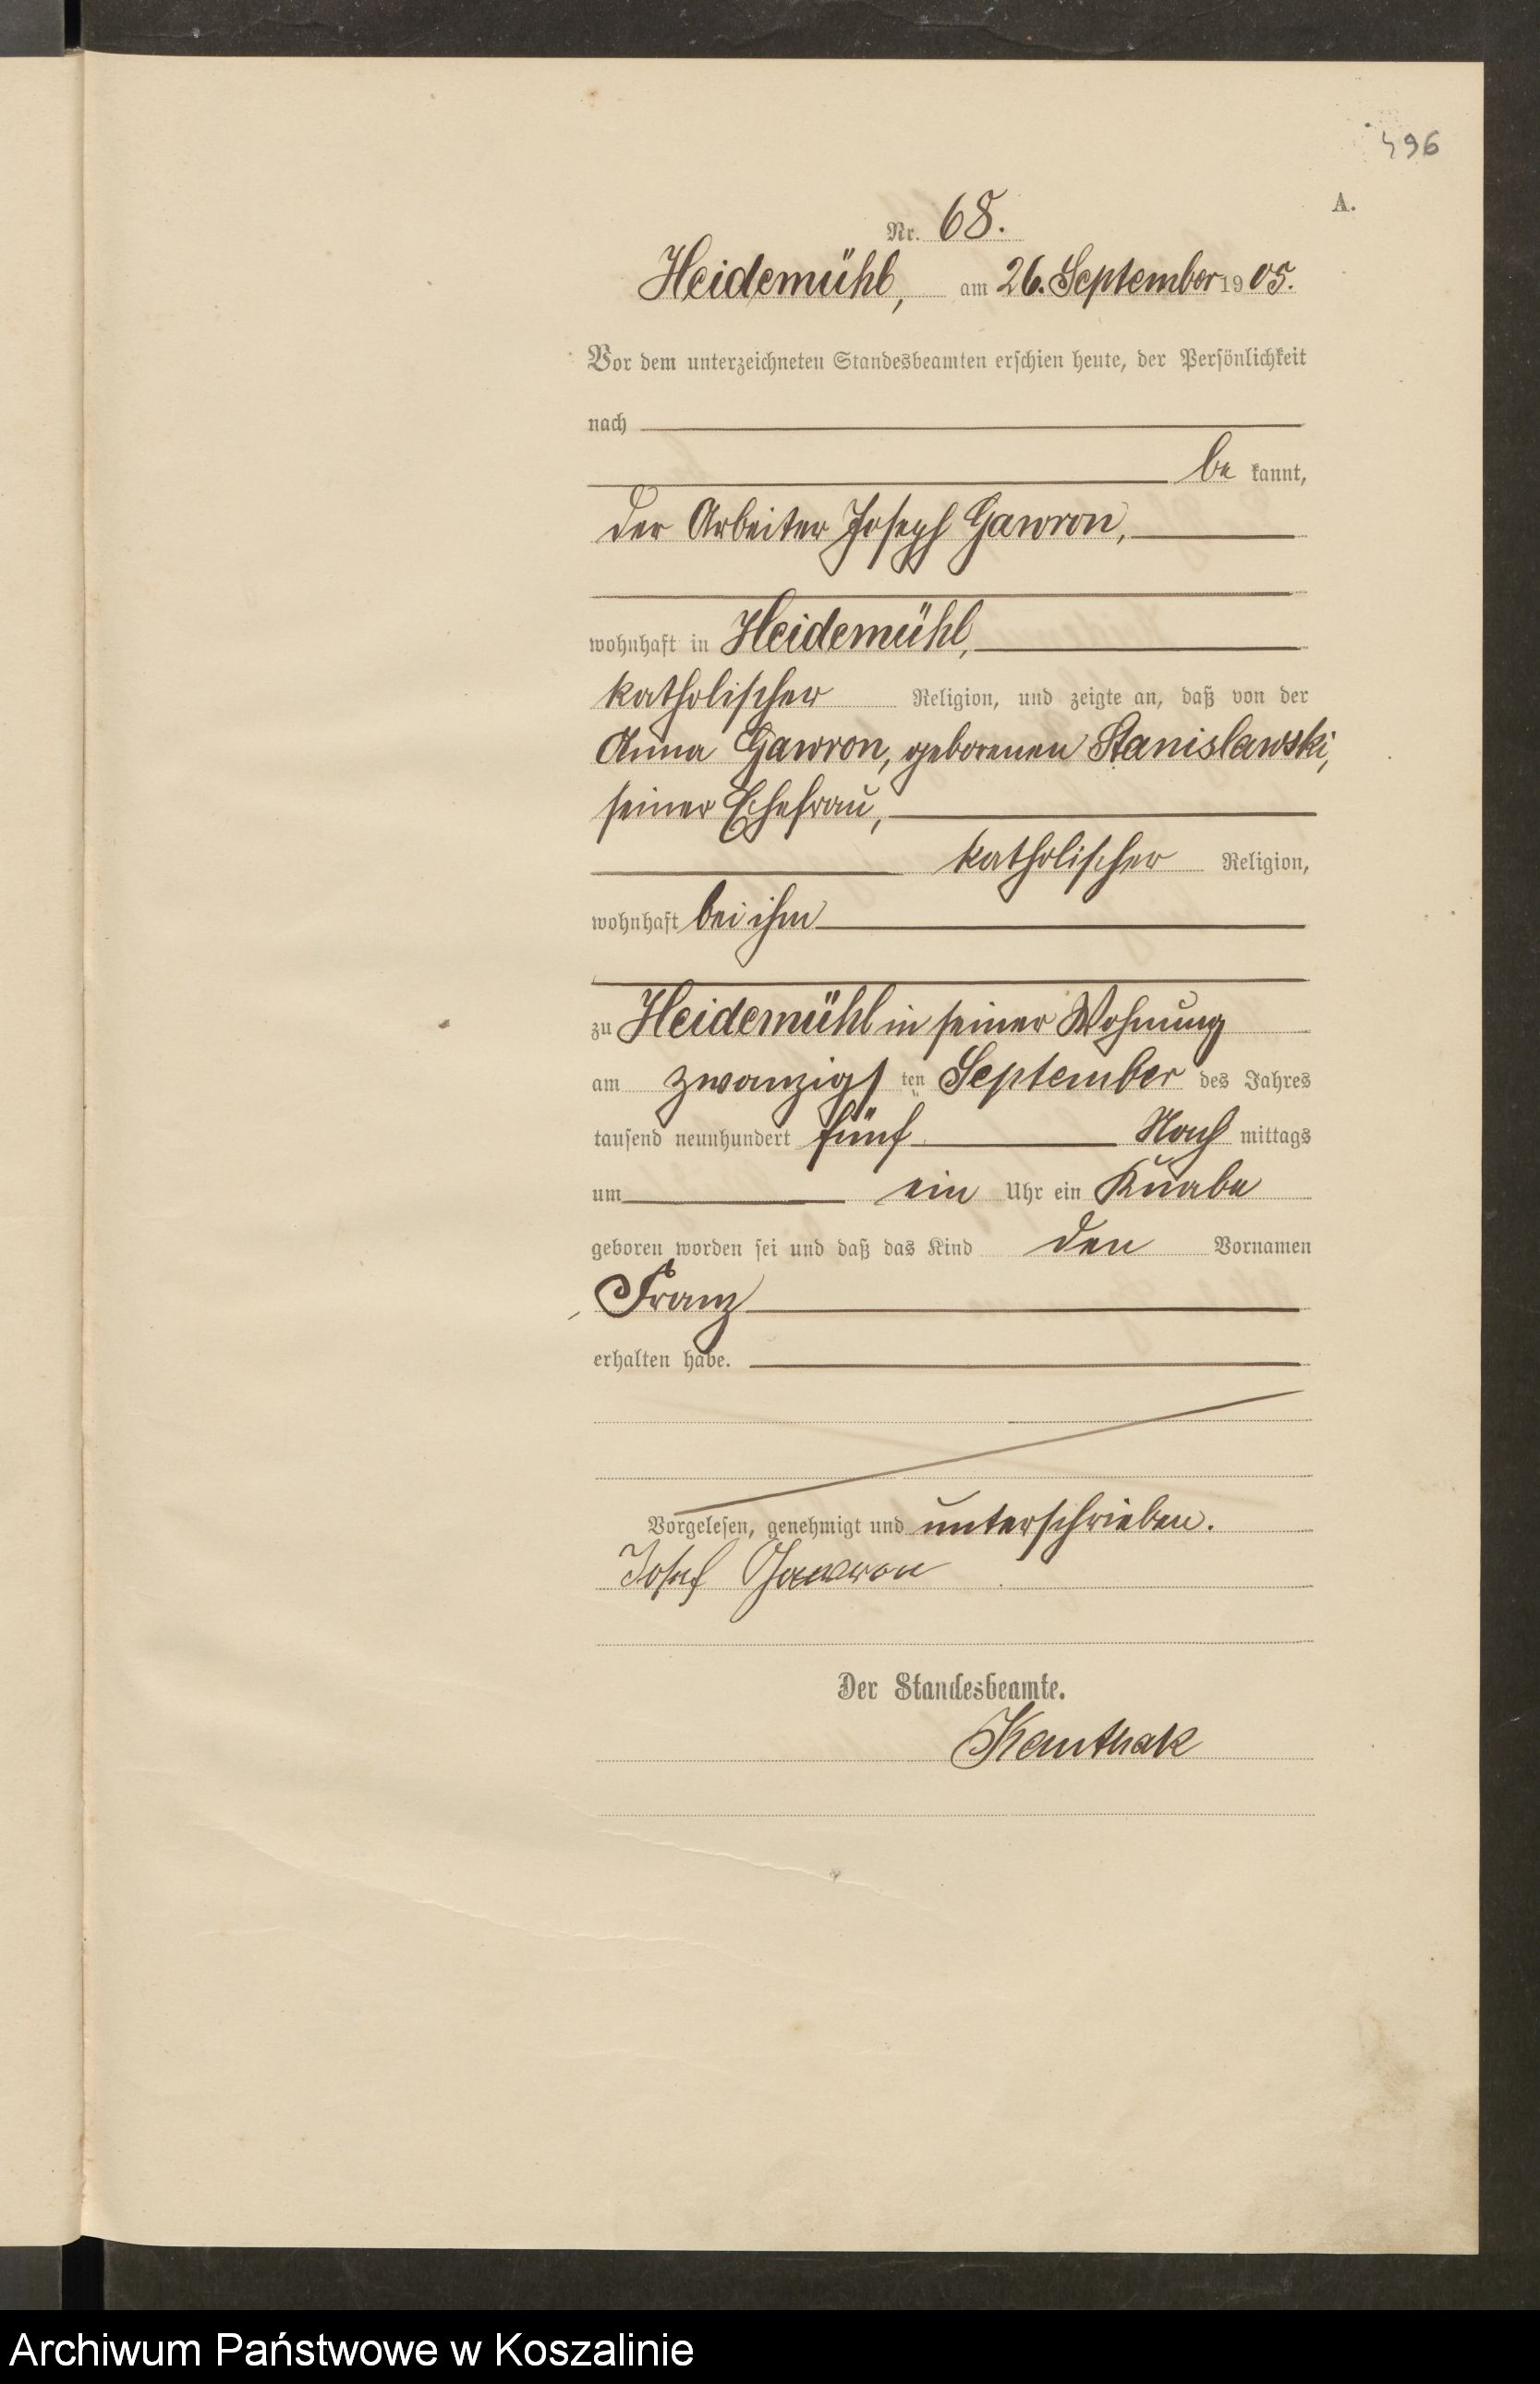 496
A.
Nr. 68.
Heidemühl, am 26. September 1905.
Vor dem unterzeichneten Standesbeamten erschien heute, der Persönlichkeit
nach
be kannt,
der Arbeiter Joseph Gawron,
wohnhaft in Heidemühl,
katholischer Religion, und zeigte an, daß von der
Anna Gawron, geborenen Stanislawski,
seiner Ehefrau,
katholischer Religion,
wohnhaft bei ihm
zu Heidemühl in seiner Wohnung
am zwanzigs ten September des Jahres
tausend neunhundert fünf Nach mittags
um ein Uhr ein Knabe
geboren worden sei und daß das Kind den Vornamen
Franz
erhalten habe.
Vorgelesen, genehmigt und unterschrieben.
Josef Gawron
Der Standesbeamte.
Archiwum Państwowe w Koszalinie